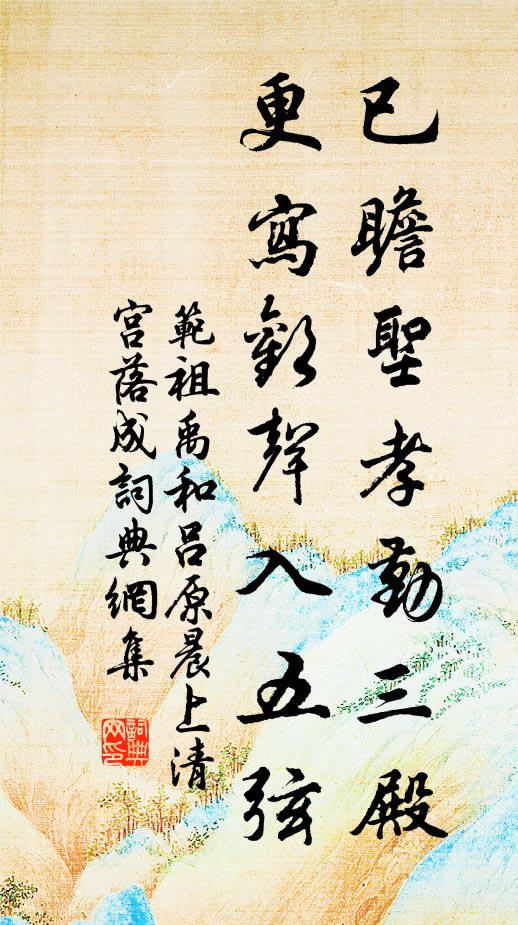 已瞻聖孝勤三殿
更寫歡聲入五弦
範祖禹和呂原晨上清
宮落成詞典網集
詞典
网印